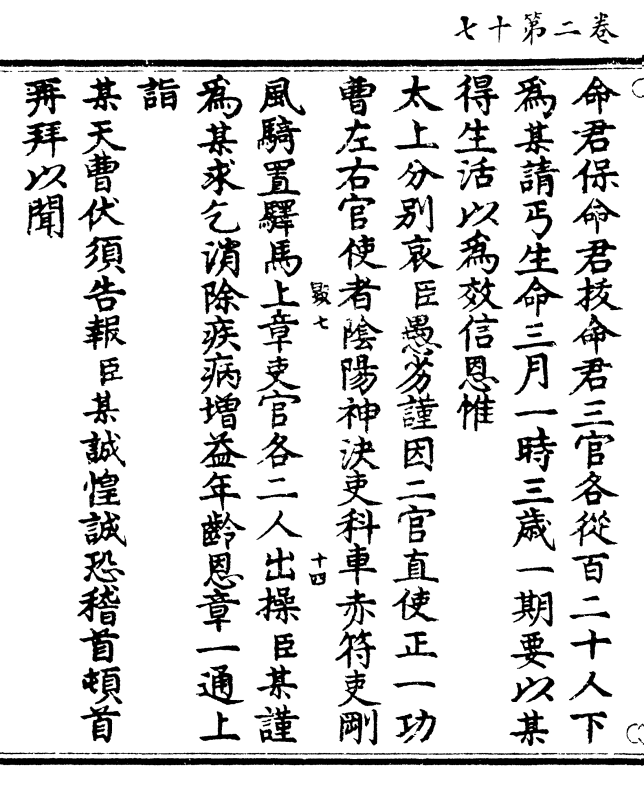 卷二第十七
命君保命君拔命君三官各從百二十人下
爲某請丐生命三月一時三歲一期要以某
得生活以爲效信恩惟
太上分別哀臣愚劣謹因二官直使正一功
曹左右官使者陰陽神決吏科車赤符吏剛
七
十四
風騎置驛馬上章吏官各二人出操臣某謹
爲某求乞消除疾病增益年齡恩章一通上
詣
某天曹伏須告報臣某誠惶誠恐稽首頓首
再拜以聞